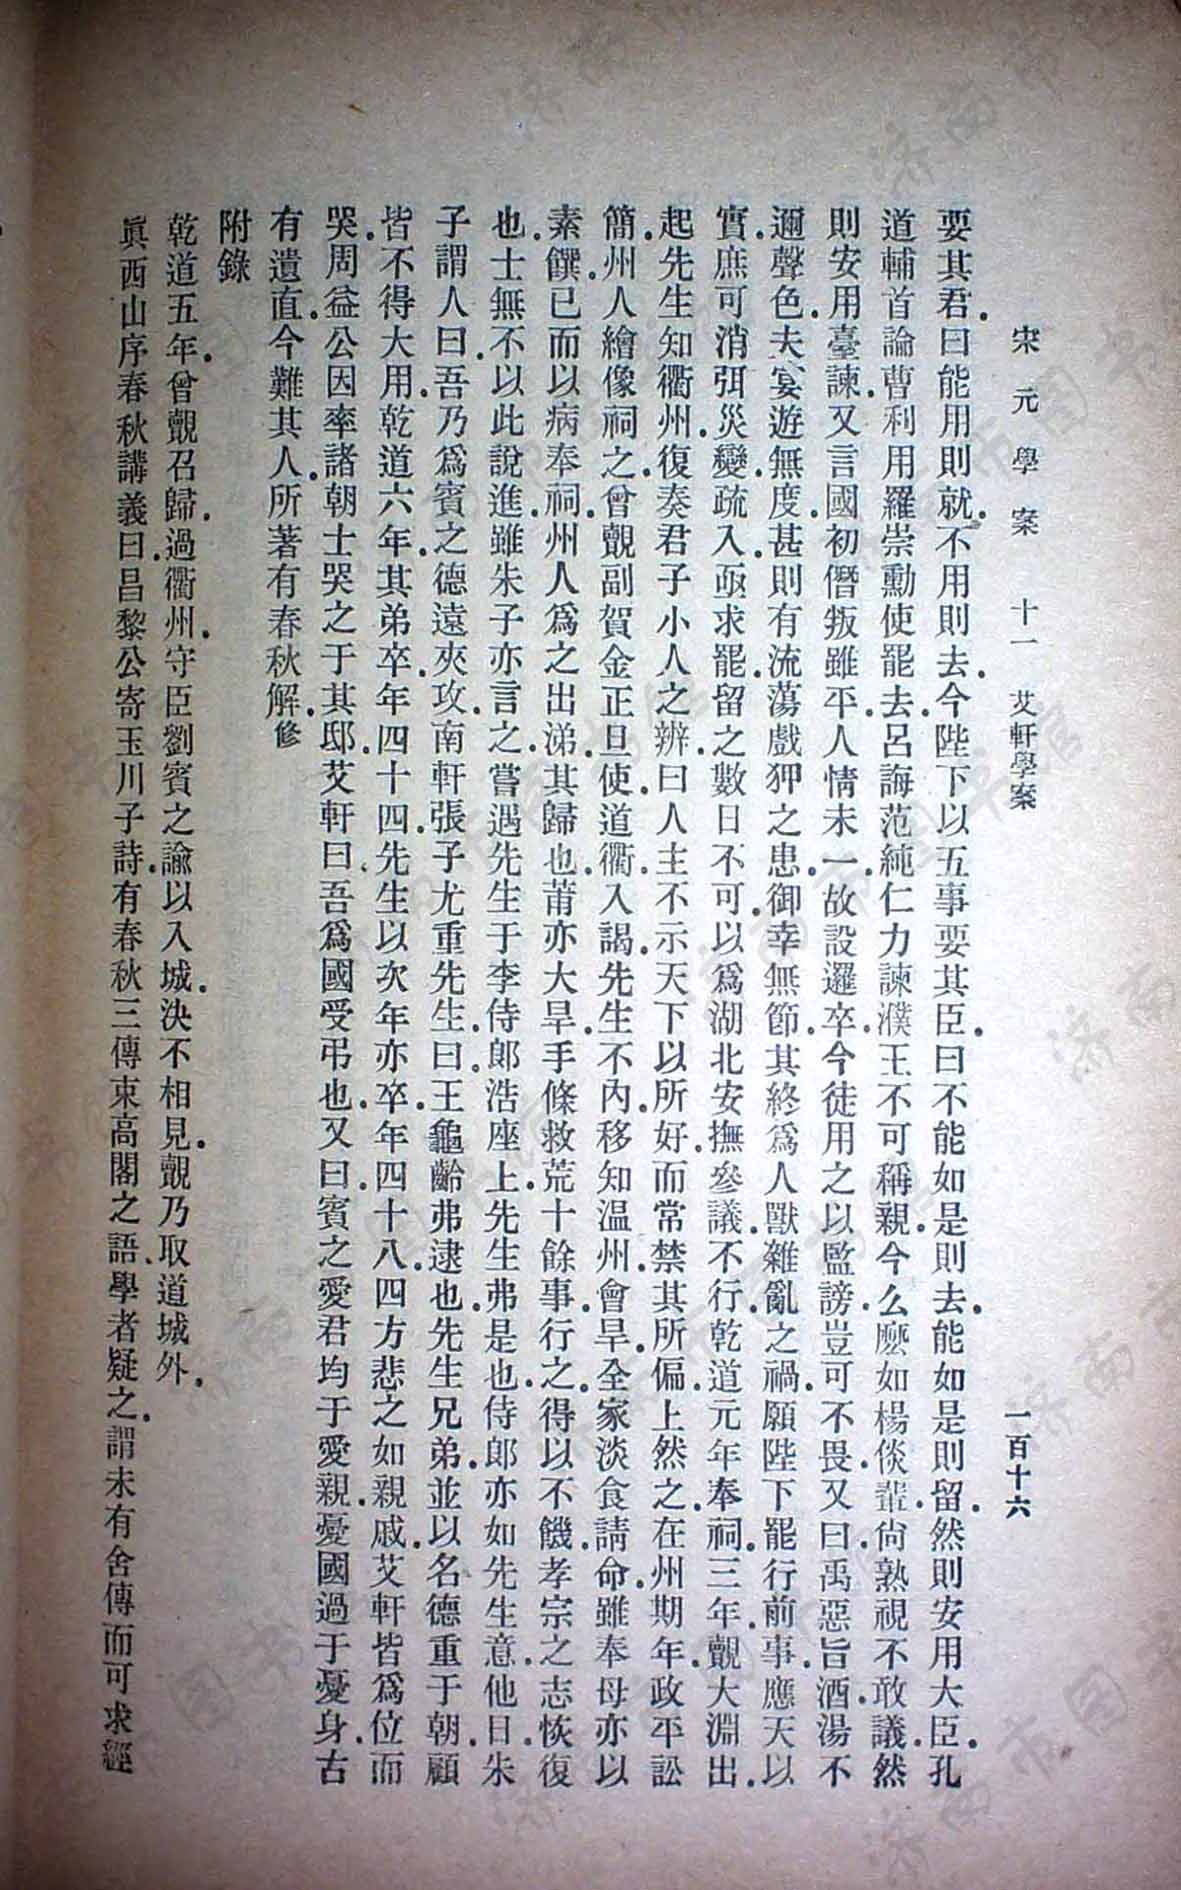 宋元學案 十一 艾軒學案 一百十六
要其君曰能用則就不用則去今陛下以五事要其臣曰不能如是則去能如是則留然則安用大臣孔
道輔首論曹利用羅崇勳使罷去呂誨范純仁力諫濮王不可稱親今么麽如楊倓輩尙熟視不敢議然
則安用臺諫又言國初僭叛雖平人情未一故設邏卒今徒用之以監謗豈可不畏又曰禹惡旨酒湯不
邇聲色夫宴遊無度甚則有流蕩戲狎之患御幸無節其終爲人獸雜亂之禍願陛下罷行前事應天以
實庶可消弭災變疏入亟求罷留之數日不可以爲湖北安撫參議不行乾道元年奉祠三年覿大淵出
起先生知衢州復奏君子小人之辨曰人主不示天下以所好而常禁其所偏上然之在州期年政平訟
簡州人繪像祠之曾覿副賀金正旦使道衢入謁先生不內移知溫州會旱全家淡食請命雖奉母亦以
素饌已而以病奉祠州人爲之出涕其歸也莆亦大旱手條救荒十餘事行之得以不饑孝宗之志恢復
也士無不以此說進雖朱子亦言之嘗遇先生于李侍郞浩座上先生弗是也侍郞亦如先生意他日朱
子謂人曰吾乃爲賓之德遠夾攻南軒張子尤重先生曰王龜齡弗逮也先生兄弟並以名德重于朝顧
皆不得大用乾道六年其弟卒年四十四先生以次年亦卒年四十八四方悲之如親戚艾軒皆爲位而
哭周益公因率諸朝士哭之于其邸艾軒曰吾爲國受弔也又曰賓之愛君均于愛親憂國過于憂身古
有遺直今難其人所著有春秋解修
附錄
乾道五年曾覿召歸過衢州守臣劉賓之諭以入城決不相見覿乃取道城外
眞西山序春秋講義曰昌黎公寄玉川子詩有春秋三傳束高閣之語學者疑之謂未有舍傳而可求經